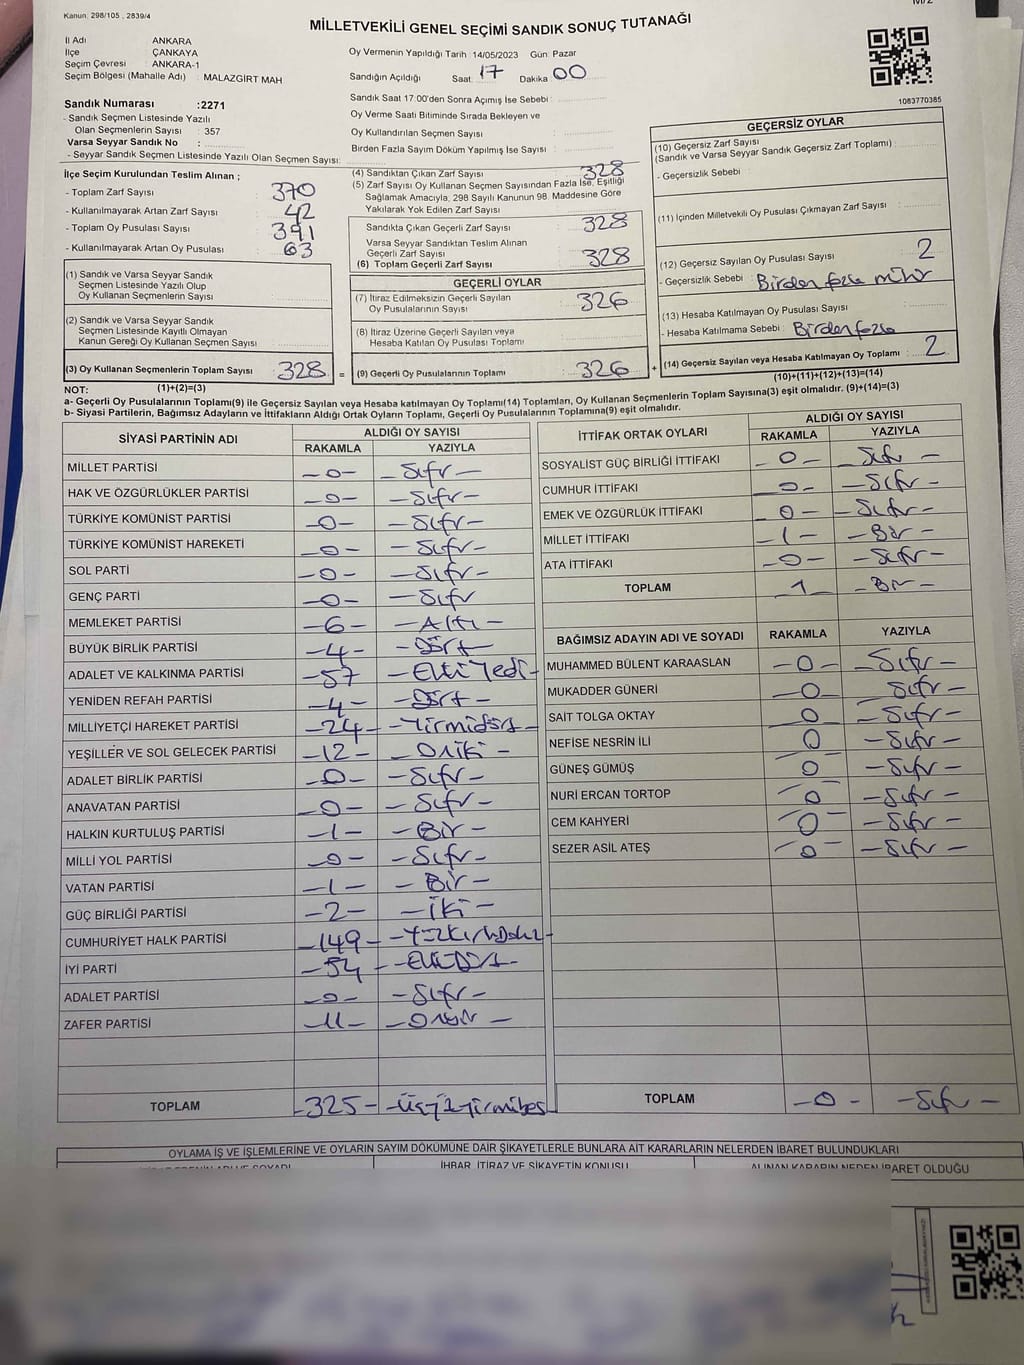 Kanun: 298/105 , 2839/4
MİLLETVEKİLİ GENEL SEÇİMİ SANDIK SONUÇ TUTANAĞI
İl Adı ANKARA
İlçe ÇANKAYA
Seçim Çevresi ANKARA-1
Seçim Bölgesi (Mahalle Adı) : MALAZGİRT MAH
Oy Vermenin Yapıldığı Tarih :14/05/2023 Gün: Pazar
Sandığın Açıldığı Saat: 17 Dakika 00
1083770385
Sandık Numarası :2271
- Sandık Seçmen Listesinde Yazılı
Olan Seçmenlerin Sayısı : 357
Varsa Seyyar Sandık No :
- Seyyar Sandık Seçmen Listesinde Yazılı Olan Seçmen Sayısı:
Sandık Saat 17:00'den Sonra Açımış İse Sebebi :
Oy Verme Saati Bitiminde Sırada Bekleyen ve
Oy Kullandırılan Seçmen Sayısı :
Birden Fazla Sayım Döküm Yapılmış İse Sayısı :
İlçe Seçim Kurulundan Teslim Alınan ;
- Toplam Zarf Sayısı : 370
- Kullanılmayarak Artan Zarf Sayısı : 42
- Toplam Oy Pusulası Sayısı : 391
- Kullanılmayarak Artan Oy Pusulası : 63
(4) Sandıktan Çıkan Zarf Sayısı : 328
(5) Zarf Sayısı Oy Kullanan Seçmen Sayısından Fazla İse, Eşitliği
Sağlamak Amacıyla; 298 Sayılı Kanunun 98. Maddesine Göre
Yakılarak Yok Edilen Zarf Sayısı
Sandıkta Çıkan Geçerli Zarf Sayısı : 328
Varsa Seyyar Sandıktan Teslim Alınan
Geçerli Zarf Sayısı
(6) Toplam Geçerli Zarf Sayısı : 328
GEÇERSİZ OYLAR
(10) Geçersiz Zarf Sayısı
(Sandık ve Varsa Seyyar Sandık Geçersiz Zarf Toplamı) :
- Geçersizlik Sebebi :
(11) İçinden Milletvekili Oy Pusulası Çıkmayan Zarf Sayısı :
(12) Geçersiz Sayılan Oy Pusulası Sayısı : 2
- Geçersizlik Sebebi : Birden fazla mühür
(13) Hesaba Katılmayan Oy Pusulası Sayısı :
- Hesaba Katılmama Sebebi : Birden fazla
(14) Geçersiz Sayılan veya Hesaba Katılmayan Oy Toplamı : 2
(10)+(11)+(12)+(13)=(14)
(1) Sandık ve Varsa Seyyar Sandık
Seçmen Listesinde Yazılı Olup
Oy Kullanan Seçmenlerin Sayısı :
(2) Sandık ve Varsa Seyyar Sandık
Seçmen Listesinde Kayıtlı Olmayan
Kanun Gereği Oy Kullanan Seçmen Sayısı :
(3) Oy Kullanan Seçmenlerin Toplam Sayısı : 328 =
GEÇERLİ OYLAR
(7) İtiraz Edilmeksizin Geçerli Sayılan
Oy Pusulalarının Sayısı : 326
(8) İtiraz Üzerine Geçerli Sayılan veya
Hesaba Katılan Oy Pusulası Toplamı :
(9) Geçerli Oy Pusulalarının Toplamı : 326 +
NOT: (1)+(2)=(3)
a- Geçerli Oy Pusulalarının Toplamı(9) ile Geçersiz Sayılan veya Hesaba katılmayan Oy Toplamı(14) Toplamları, Oy Kullanan Seçmenlerin Toplam Sayısına(3) eşit olmalıdır. (9)+(14)=(3)
b- Siyasi Partilerin, Bağımsız Adayların ve İttifakların Aldığı Ortak Oyların Toplamı, Geçerli Oy Pusulalarının Toplamına(9) eşit olmalıdır.
SİYASİ PARTİNİN ADI ALDIĞI OY SAYISI
RAKAMLA YAZIYLA
MİLLET PARTİSİ -0- -Sıfır-
HAK VE ÖZGÜRLÜKLER PARTİSİ -0- -Sıfır-
TÜRKİYE KOMÜNİST PARTİSİ -0- -Sıfır-
TÜRKİYE KOMÜNİST HAREKETİ -0- -Sıfır-
SOL PARTİ -0- -Sıfır-
GENÇ PARTİ -0- -Sıfır
MEMLEKET PARTİSİ -6- -Altı-
BÜYÜK BİRLİK PARTİSİ -4- -Dört-
ADALET VE KALKINMA PARTİSİ -57 -Elli Yedi-
YENİDEN REFAH PARTİSİ -4- -Dört-
MİLLİYETÇİ HAREKET PARTİSİ -24- -Yirmidört-
YEŞİLLER VE SOL GELECEK PARTİSİ -12- -Oniki-
ADALET BİRLİK PARTİSİ -0- -Sıfır-
ANAVATAN PARTİSİ -0- -Sıfır-
HALKIN KURTULUŞ PARTİSİ -1- -Bir-
MİLLİ YOL PARTİSİ -0- -Sıfır-
VATAN PARTİSİ -1- -Bir-
GÜÇ BİRLİĞİ PARTİSİ -2- -İki-
CUMHURİYET HALK PARTİSİ -149- -YüzKırkDokuz-
İYİ PARTİ -54- -ElliDört-
ADALET PARTİSİ -0- -Sıfır-
ZAFER PARTİSİ -11- -Onbir-
TOPLAM -325- -Üçyüzyirmibeş
İTTİFAK ORTAK OYLARI ALDIĞI OY SAYISI
RAKAMLA YAZIYLA
SOSYALİST GÜÇ BİRLİĞİ İTTİFAKI -0- -Sıfır-
CUMHUR İTTİFAKI -0- -Sıfır-
EMEK VE ÖZGÜRLÜK İTTİFAKI -0- -Sıfır-
MİLLET İTTİFAKI -1- -Bir-
ATA İTTİFAKI -0- -Sıfır-
TOPLAM -1- -Bir-
BAĞIMSIZ ADAYIN ADI VE SOYADI RAKAMLA YAZIYLA
MUHAMMED BÜLENT KARAASLAN -0- -Sıfır-
MUKADDER GÜNERİ -0- -Sıfır-
SAİT TOLGA OKTAY -0- -Sıfır-
NEFİSE NESRİN İLİ 0 -Sıfır-
GÜNEŞ GÜMÜŞ -0- -Sıfır-
NURİ ERCAN TORTOP -0- -Sıfır-
CEM KAHYERİ -0- -Sıfır-
SEZER ASİL ATEŞ -0- -Sıfır-
TOPLAM -0- -Sıfır-
OYLAMA İŞ VE İŞLEMLERİNE VE OYLARIN SAYIM DÖKÜMÜNE DAİR ŞİKAYETLERLE BUNLARA AİT KARARLARIN NELERDEN İBARET BULUNDUKLARI
İHBAR, İTİRAZ VE ŞİKAYETİN KONUSU ALINAN KARARIN NEDEN İBARET OLDUĞU